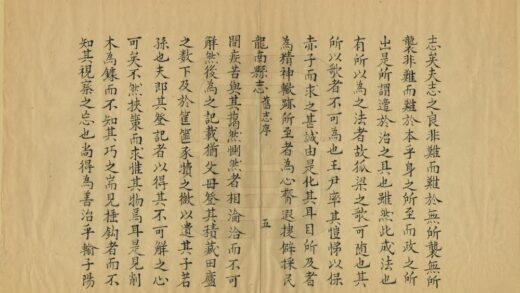 志矣夫志之良非難而難於無所襲無所
襲非難而難於本乎身之所至而政之所
出是所謂達於治之具也雖然此成法也
有所以為之法者故孤梁之歌可隨也其
所以歌者不可為也王尹率其愷悌以保
赤子而求之其誠由是化其耳目所及者
為精神轍跡所至者為心膂遐搜僻採民
龍南縣志 舊志序 五
間疾苦與其藹然惻然者相淪洽而不可
解然後為之記載猶父母簽其積藏田廬
之數下及於筐篋豕犢之微以遺其子若
孫也夫即其登記者以得其不可解之心
可矣不然挾策而求惟其物焉耳是見削
木為鐻而不知其巧之耑見捶鉤者而不
知其視察之也尚得為善治乎輸子陽